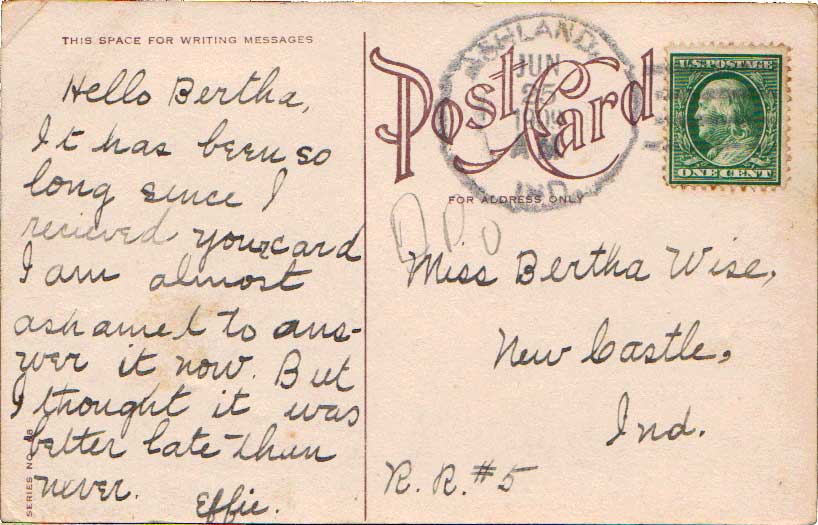 THIS SPACE FOR WRITING MESSAGES
Hello Bertha,
It has been so
long since I
recieved your card
I am almost
ashamed to ans-
wer it now. But
I thought it was
better late than
never.
Effie.
SERIES NO.
Post Card
ASHLAND,
JUN
25
A.M.
IND.
U.S. POSTAGE
ONE CENT
FOR ADDRESS ONLY
DPO
Miss Bertha Wise,
New Castle,
Ind.
R. R. #5